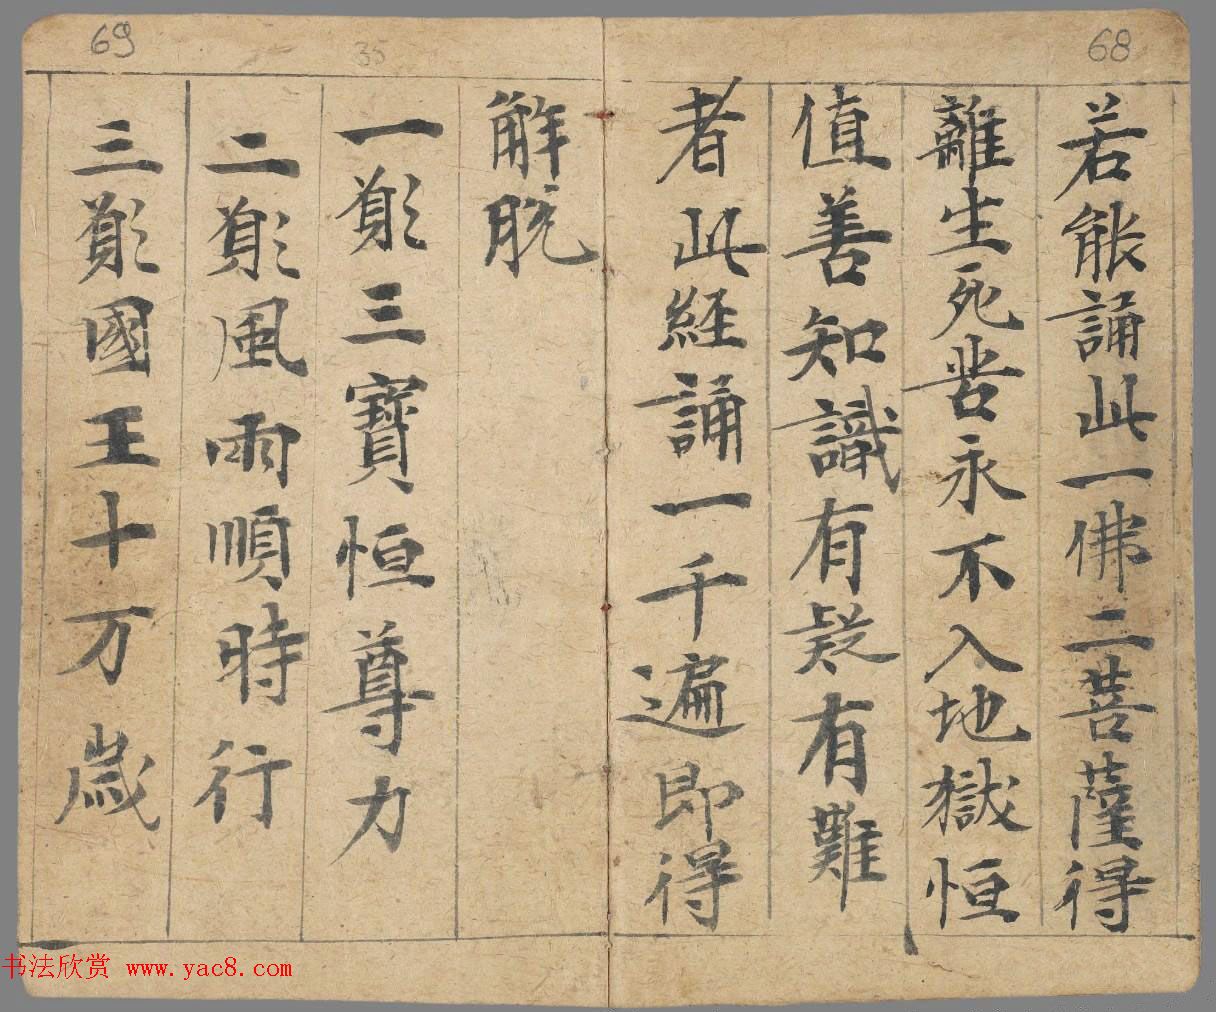 68
若能誦此一佛二菩薩得
離生死苦永不入地獄恒
值善知識有疑有難
者此經誦一千遍即得
69
35
解脫
一願三寶恒尊力
二願風雨順時行
三願國王十万歲
书法欣赏 www.yac8.com